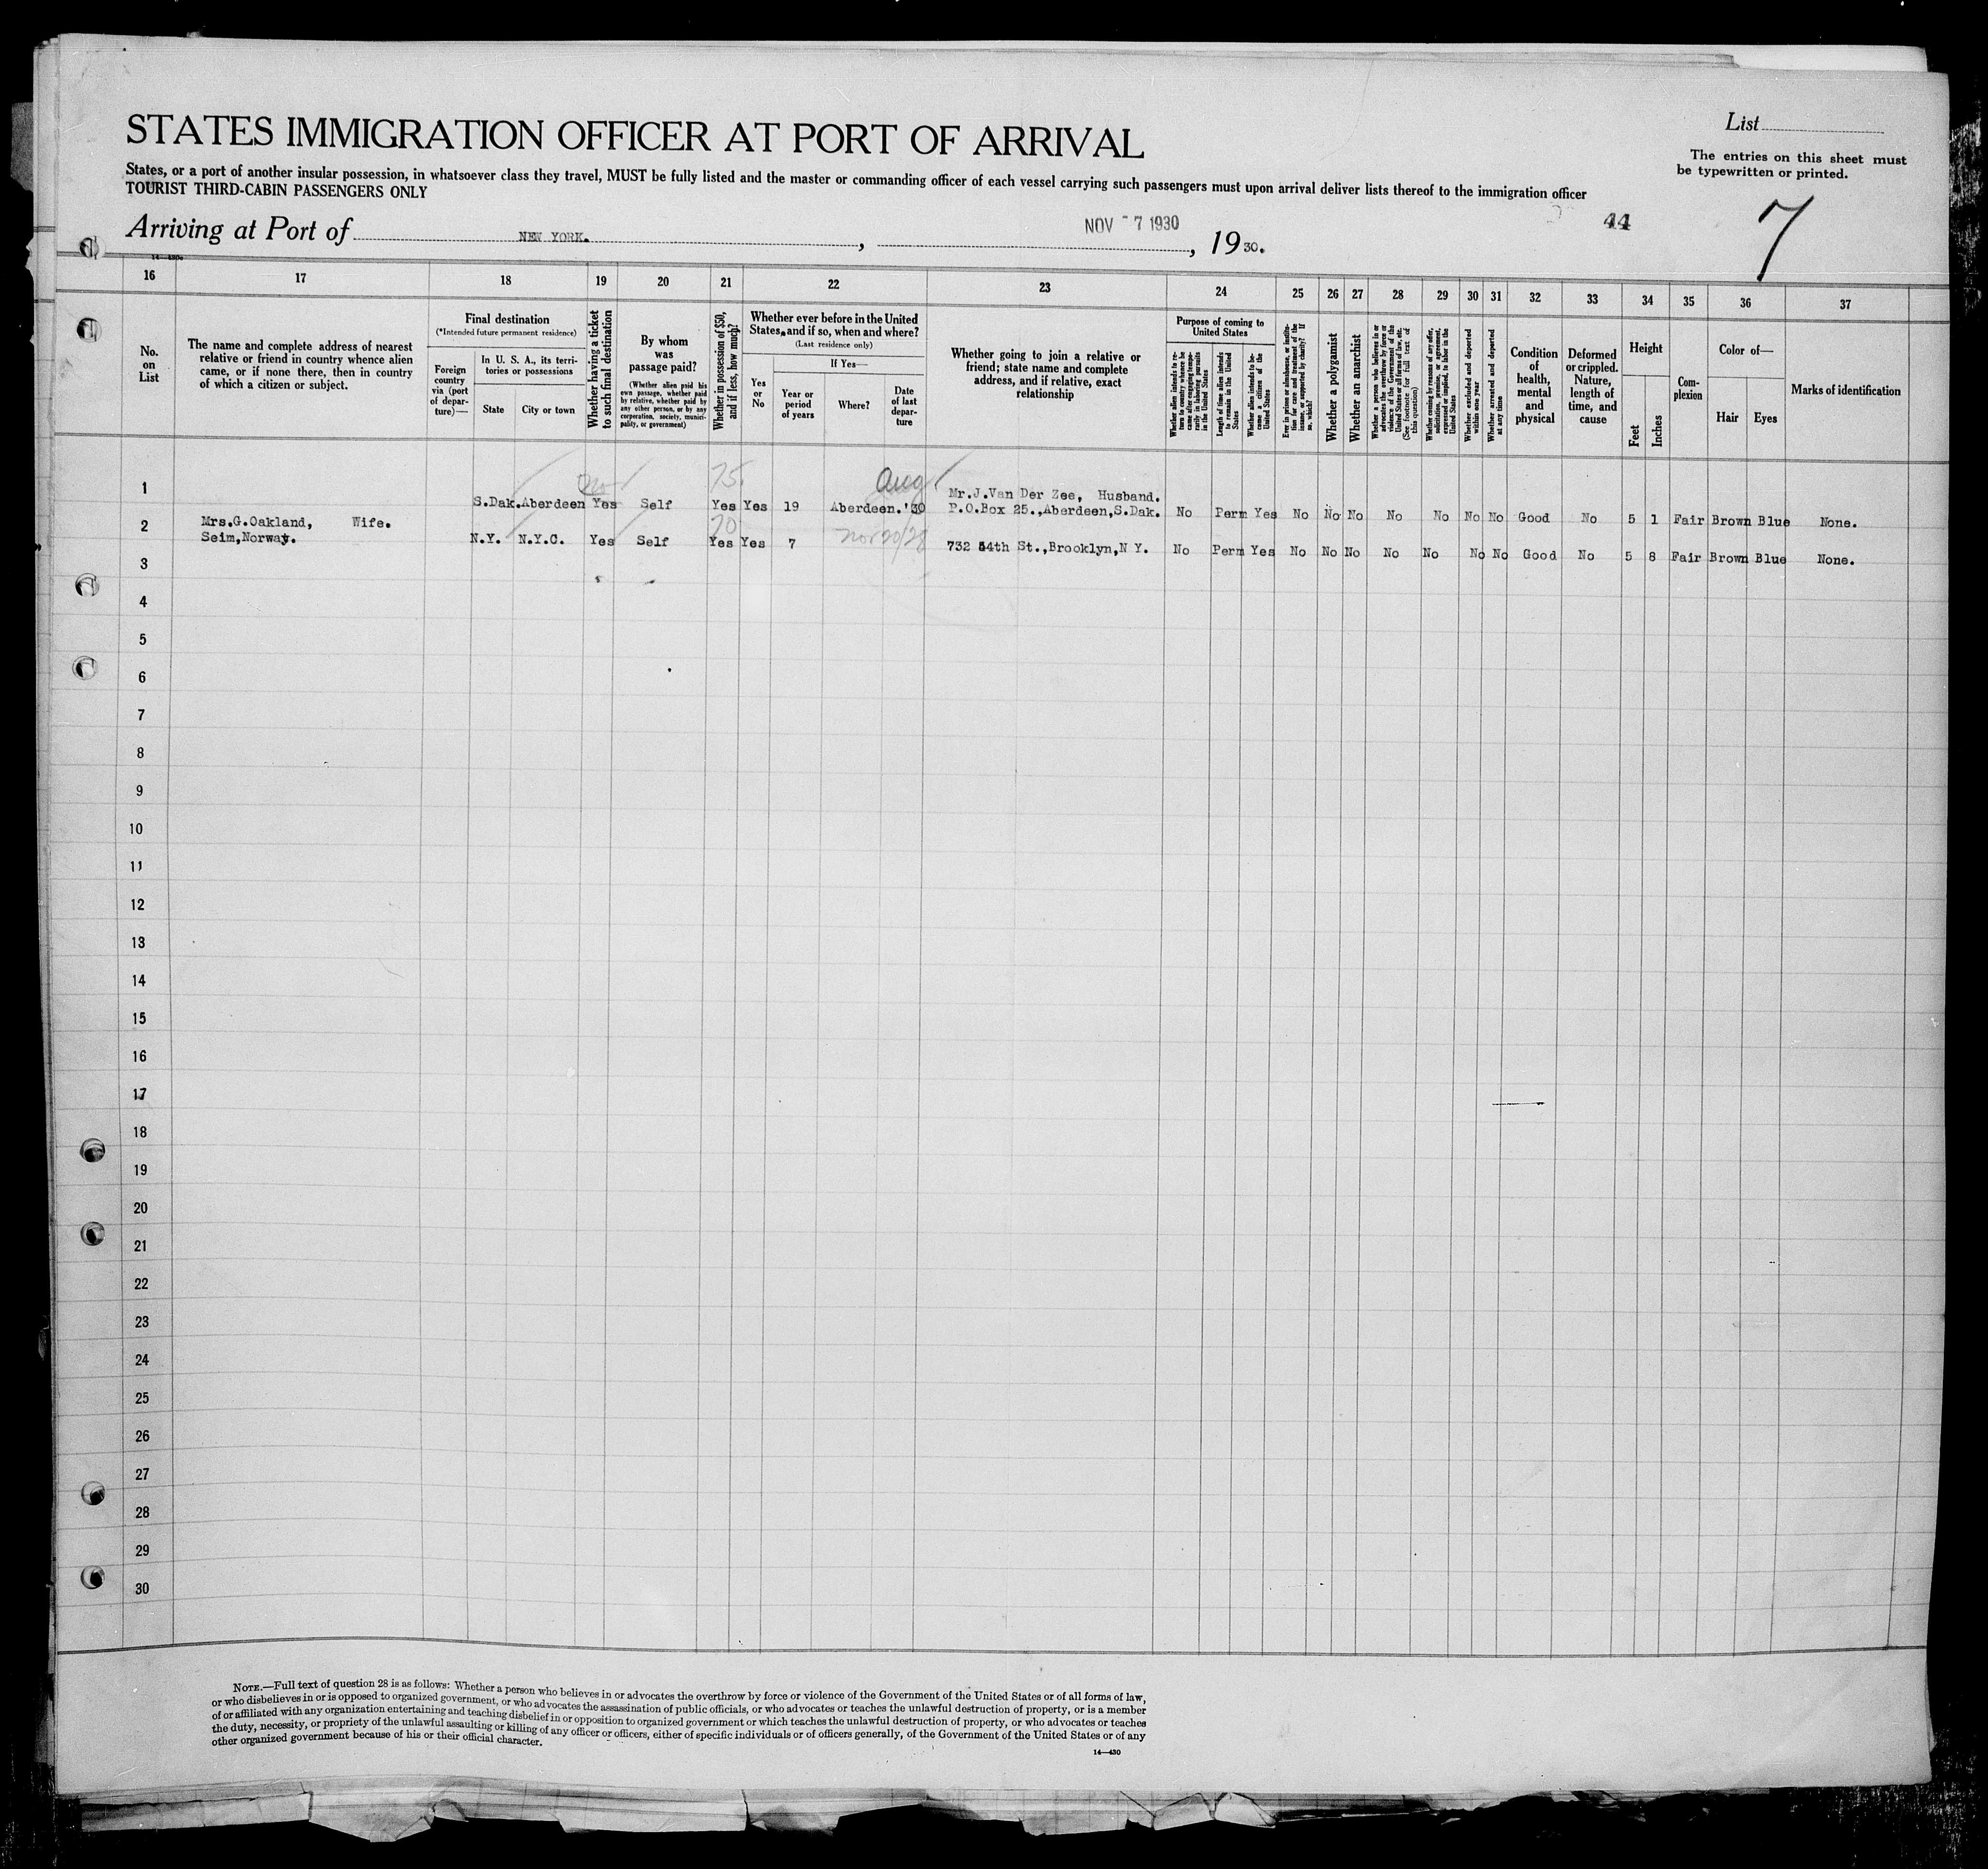 STATES IMMIGRATION OFFICER AT PORT OF ARRIVAL
List
The entries on this sheet must
be typewritten or printed.
States, or a port of another insular possession, in whatsoever class they travel, MUST be fully listed and the master or commanding officer of each vessel carrying such passengers must upon arrival deliver lists thereof to the immigration officer
TOURIST THIRD-CABIN PASSENGERS ONLY
44
7
Arriving at Port of NEW YORK. , NOV - 7 1930 , 19 30.
14—430
16 17 18 19 20 21 22 23 24 25 26 27 28 29 30 31 32 33 34 35 36 37
No.
on
List
The name and complete address of nearest
relative or friend in country whence alien
came, or if none there, then in country
of which a citizen or subject.
Final destination
(*Intended future permanent residence)
Foreign
country
via (port
of depar-
ture)—
In U. S. A., its terri-
tories or possessions
State
City or town
Whether having a ticket
to such final destination
By whom
was
passage paid?
(Whether alien paid his
own passage, whether paid
by relative, whether paid by
any other person, or by any
corporation, society, munici-
pality, or government)
Whether in possession of $50,
and if less, how much?
Whether ever before in the United
States, and if so, when and where?
(Last residence only)
Yes
or
No
If Yes—
Year or
period
of years
Where?
Date
of last
depar-
ture
Whether going to join a relative or
friend; state name and complete
address, and if relative, exact
relationship
Purpose of coming to
United States
Whether alien intends to re-
turn to country whence he
came after engaging tempo-
rarily in laboring pursuits
in the United States
Length of time alien intends
to remain in the United
States
Whether alien intends to be-
come a citizen of the
United States
Ever in prison or almshouse, or institu-
tion for care and treatment of the
insane, or supported by charity? If
so, which?
Whether a polygamist
Whether an anarchist
Whether a person who believes in or
advocates the overthrow by force or
violence of the Government of the
United States or all forms of law, etc.
(See footnote for full text of
this question)
Whether coming by reason of any offer,
solicitation, promise, or agreement,
expressed or implied, to labor in the
United States
Whether excluded and deported
within one year
Whether arrested and deported
at any time
Condition
of
health,
mental
and
physical
Deformed
or crippled.
Nature,
length of
time, and
cause
Height
Feet
Inches
Com-
plexion
Color of—
Hair
Eyes
Marks of identification
75.
Aug
1 Mr.J.Van Der Zee, Husband.
S.Dak. Aberdeen Yes Self Yes Yes 19 Aberdeen. '30 P.O.Box 25.,Aberdeen,S.Dak. No Perm Yes No No No No No No No Good No 5 1 Fair Brown Blue None.
2 Mrs.G.Oakland, Wife. 70
Seim,Norway. N.Y. N.Y.C. Yes Self Yes Yes 7 Nov 20/28 732 54th St.,Brooklyn,N Y. No Perm Yes No No No No No No No Good No 5 8 Fair Brown Blue None.
3
4
5
6
7
8
9
10
11
12
13
14
15
16
17
18
19
20
21
22
23
24
25
26
27
28
29
30
NOTE.—Full text of question 28 is as follows: Whether a person who believes in or advocates the overthrow by force or violence of the Government of the United States or of all forms of law,
or who disbelieves in or is opposed to organized government, or who advocates the assassination of public officials, or who advocates or teaches the unlawful destruction of property, or is a member
of or affiliated with any organization entertaining and teaching disbelief in or opposition to organized government or which teaches the unlawful destruction of property, or who advocates or teaches
the duty, necessity, or propriety of the unlawful assaulting or killing of any officer or officers, either of specific individuals or of officers generally, of the Government of the United States or of any
other organized government because of his or their official character.
14—430